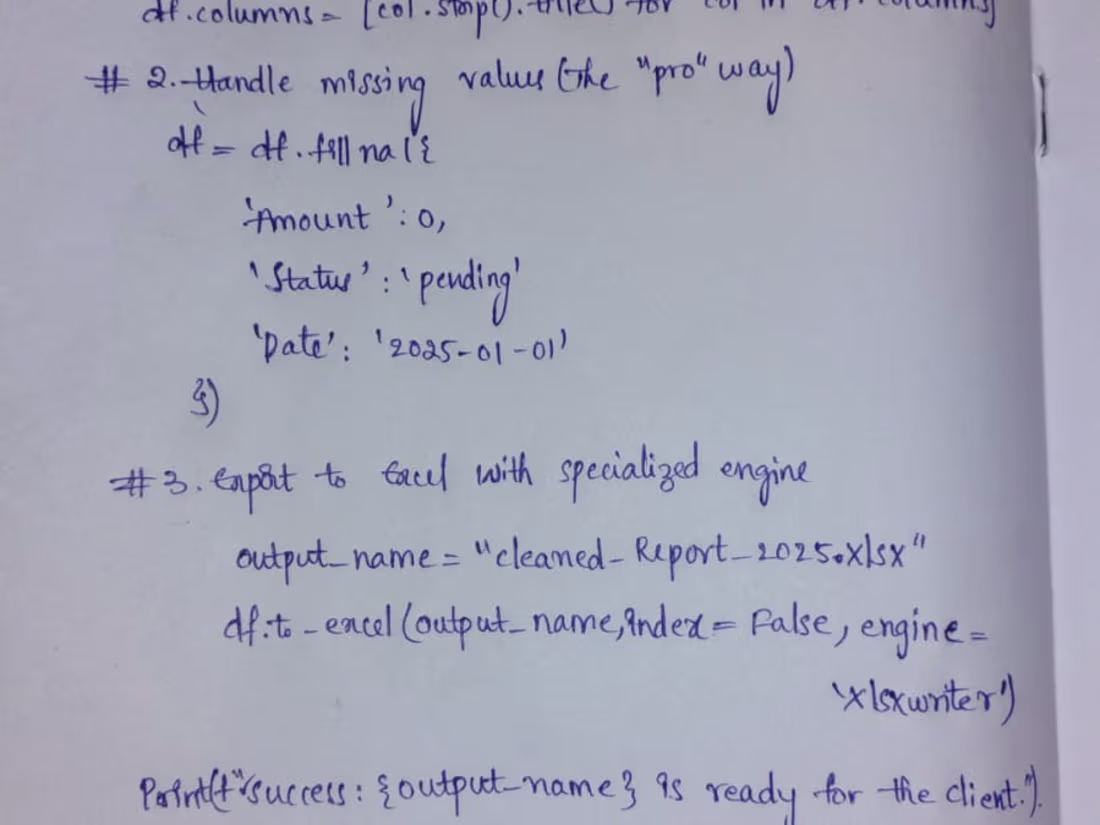 df.columns = [col.strip().title() for col in df.columns]
# 2. Handle missing values (the "pro" way)
df = df.fillna({
'Amount': 0,
'Status': 'pending'
'Date': '2025-01-01'
})
# 3. Export to Excel with specialized engine
output_name = "cleaned_Report_2025.xlsx"
df.to_excel(output_name, index = False, engine =
'xlsxwriter')
Print(f"success: {output_name} is ready for the client.").